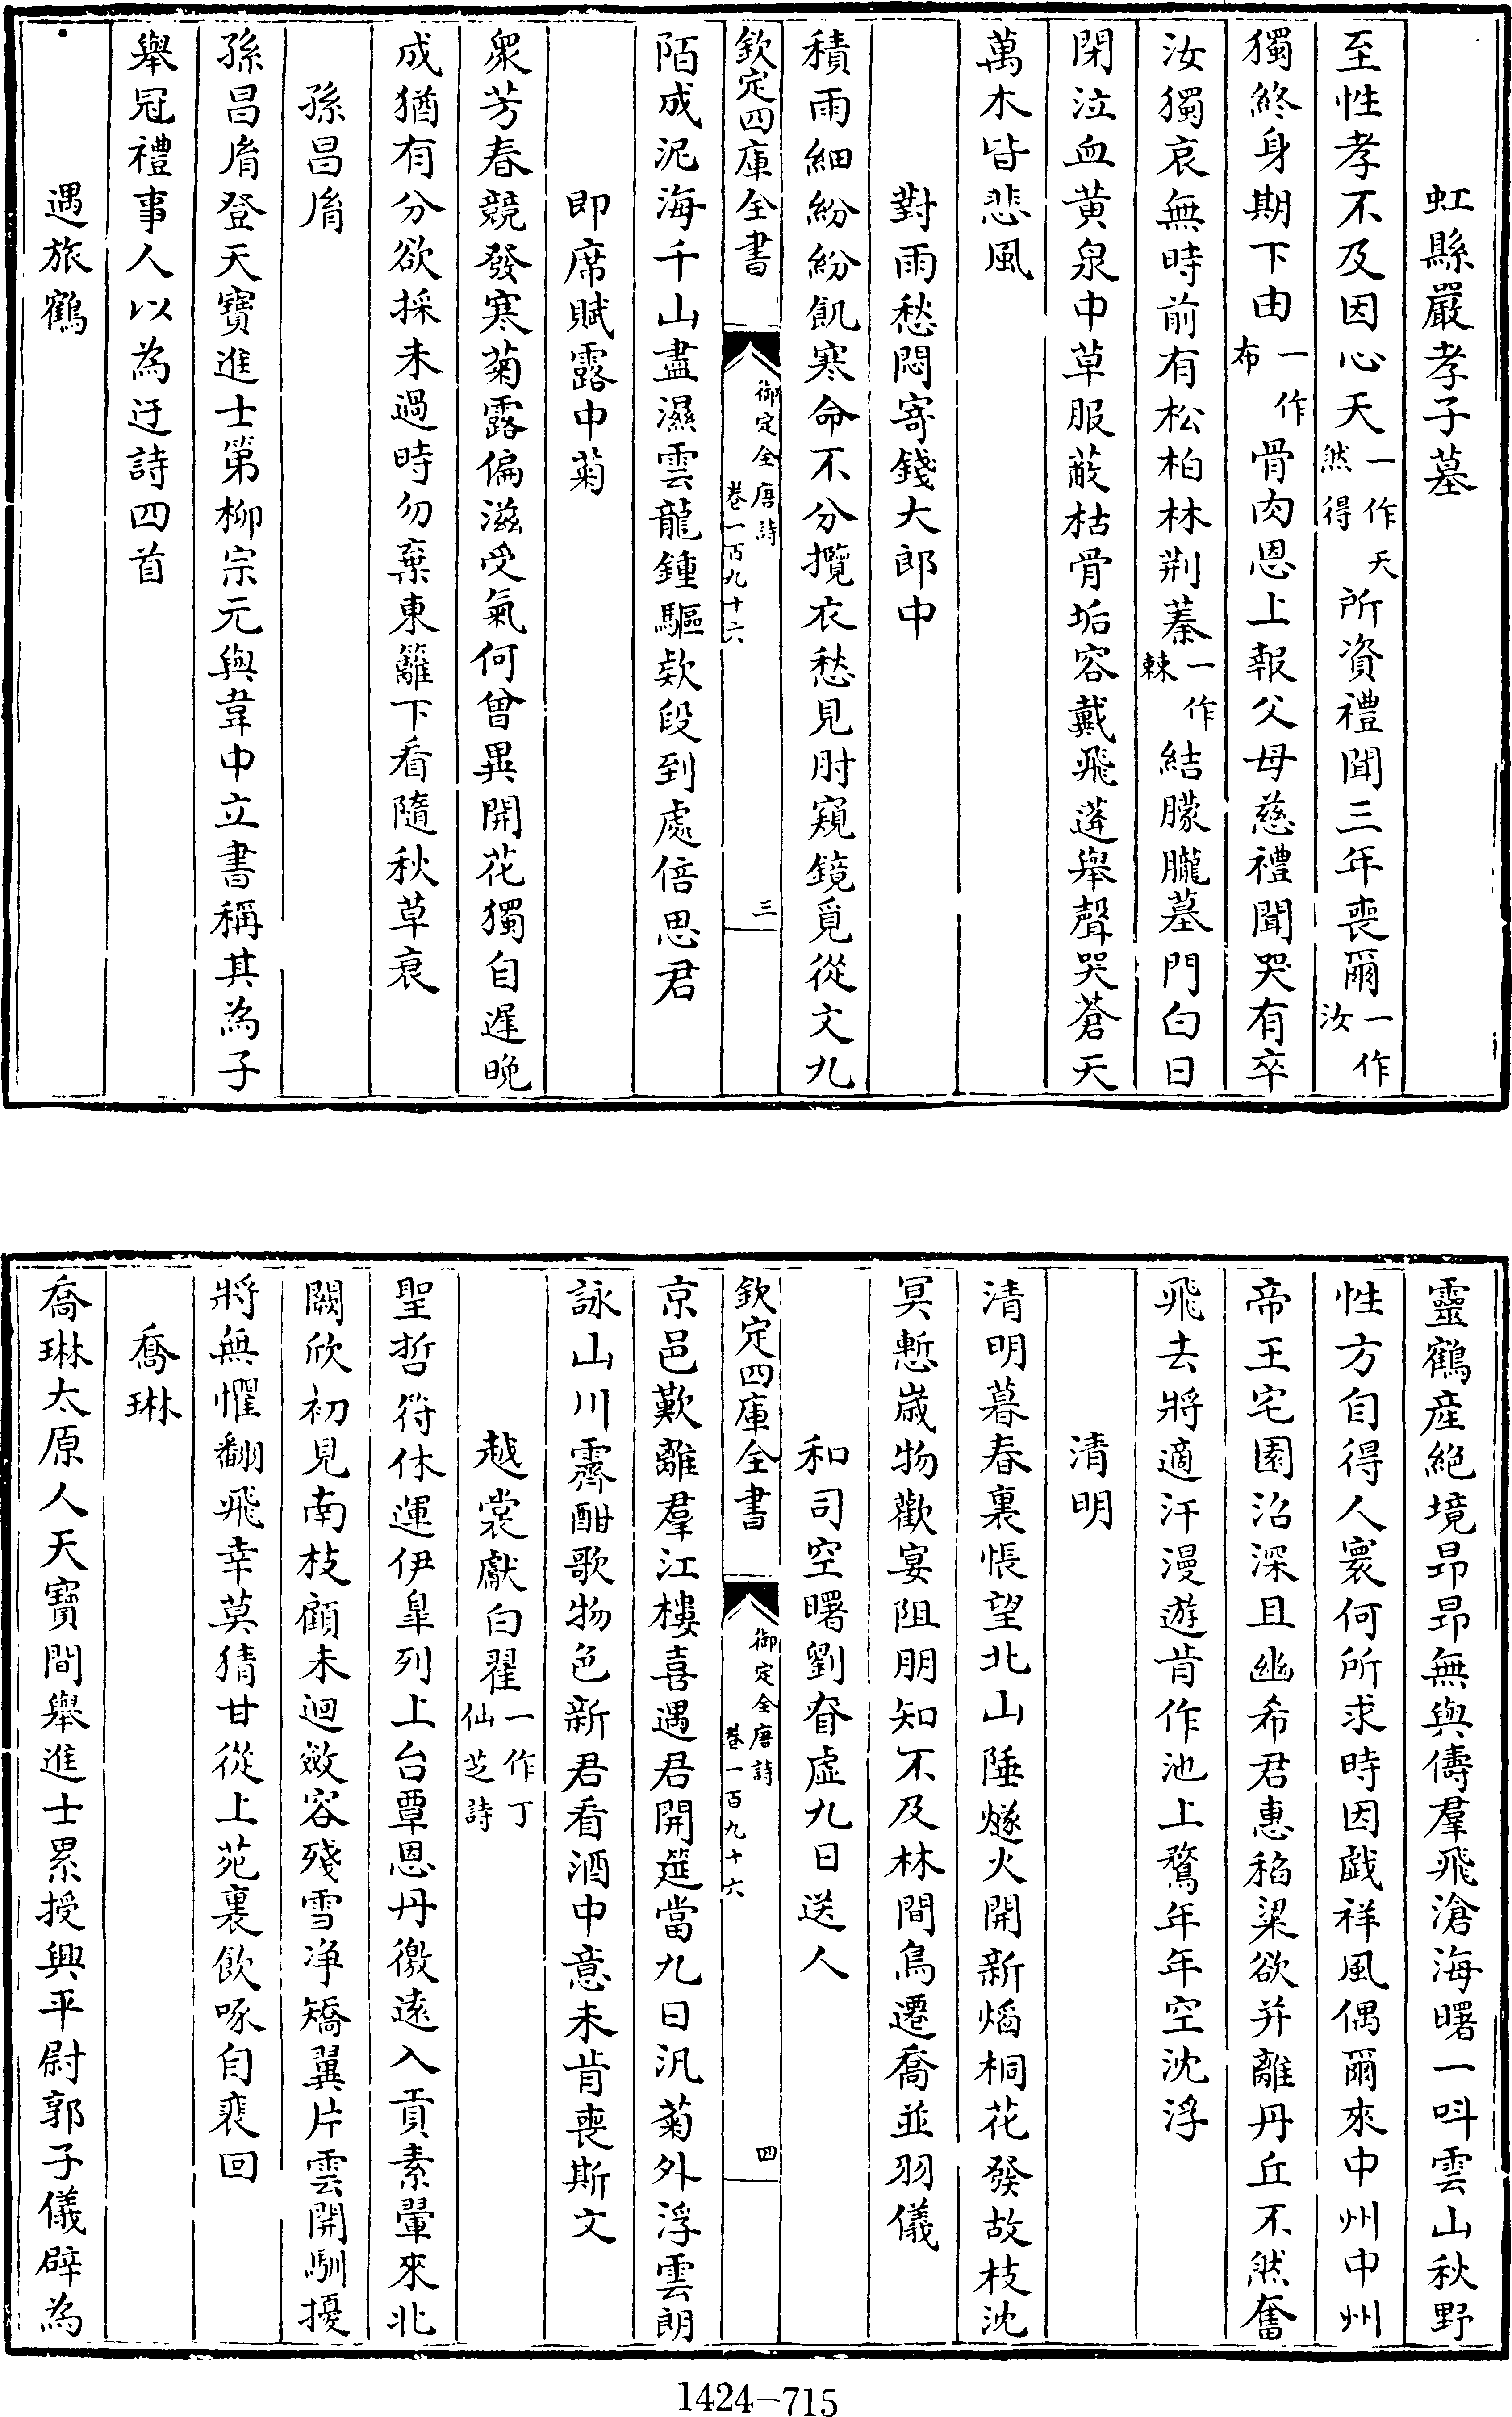 虹縣嚴孝子墓
至性孝不及因心天一作天然得所資禮聞三年喪爾一作汝
獨終身期下由一作布骨肉恩上報父母慈禮聞哭有卒
汝獨哀無時前有松柏林荆蓁一作棘結朦朧墓門白日
閉泣血黄泉中草服蔽枯骨垢容戴飛蓬舉聲哭蒼天
萬木皆悲風
對雨愁悶寄錢大郎中
積雨細紛紛飢寒命不分攬衣愁見肘窺鏡覓從文九
欽定四庫全書
御定全唐詩
卷一百九十六
三
陌成泥海千山盡濕雲龍鍾驅欵段到處倍思君
即席賦露中菊
衆芳春競發寒菊露偏滋受氣何曾異開花獨自遲晚
成猶有分欲採未過時勿棄東籬下看隨秋草衰
孫昌㣧
孫昌㣧登天寶進士第柳宗元與韋中立書稱其為子
舉冠禮事人以為迂詩四首
遇旅鶴
靈鶴産絶境昂昂無與儔羣飛滄海曙一呌雲山秋野
性方自得人寰何所求時因戯祥風偶爾來中州中州
帝王宅園沼深且幽希君惠稻粱欲并離丹丘不然奮
飛去將適汗漫遊肯作池上鶩年年空沈浮
清明
清明暮春裏悵望北山陲燧火開新熖桐花發故枝沈
冥慙嵗物歡宴阻朋知不及林間鳥遷喬並羽儀
和司空曙劉眘虛九日送人
欽定四庫全書
御定全唐詩
卷一百九十六
四
京邑歎離羣江樓喜遇君開筵當九日汎菊外浮雲朗
詠山川霽酣歌物色新君看酒中意未肯喪斯文
越裳獻白翟一作丁仙芝詩
聖哲符休運伊臯列上台覃恩丹徼逺入貢素翬來北
闕欣初見南枝顧未迴斂容殘雪淨矯翼片雲開馴擾
將無懼翻飛幸莫猜甘從上苑裏飲啄自裴回
喬琳
喬琳太原人天寶間舉進士累授興平尉郭子儀辟為
1424-715